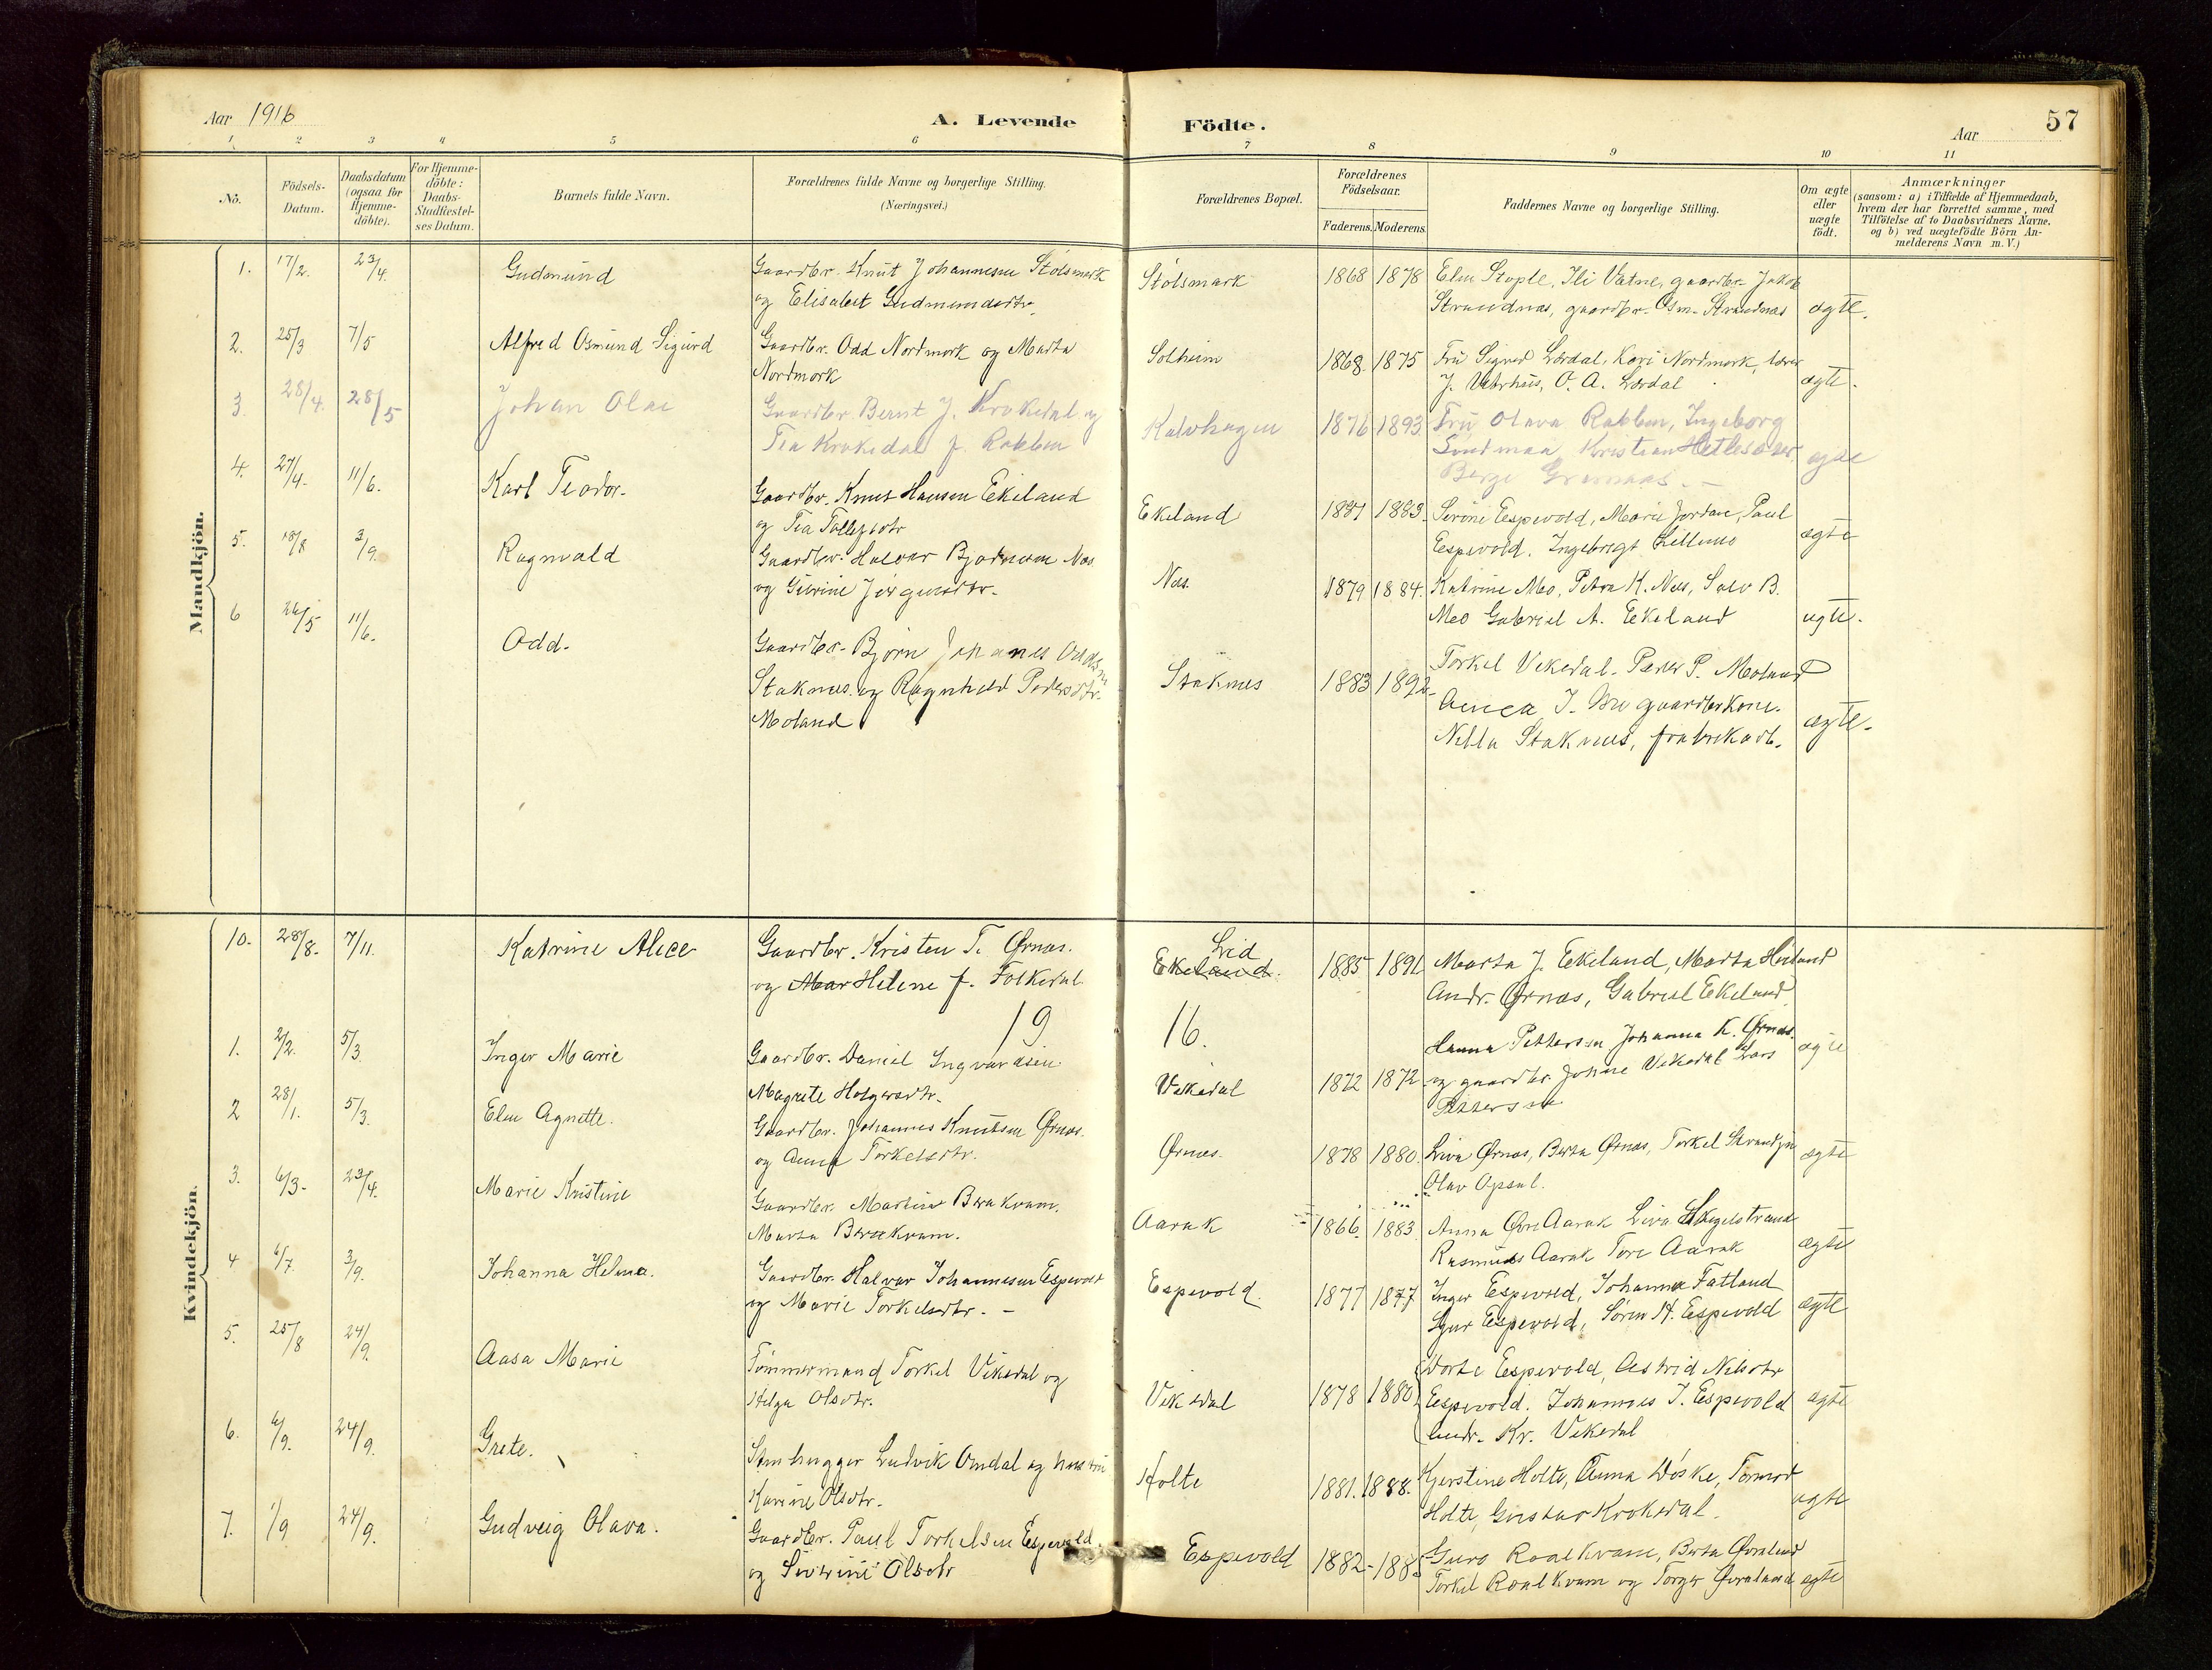 Aar 1916
A. Levende Födte.
Aar
57
1 2 3 4 5 6 7 8 9 10 11
No.
Födsels-Datum.
Daabsdatum (ogsaa for Hjemme-döbte).
For Hjemme-döbte: Daabs-Stadfæstel-ses Datum.
Barnets fulde Navn.
Forældrenes fulde Navne og borgerlige Stilling.
(Næringsvei.)
Forældrenes Bopæl.
Forældrenes Födselsaar.
Faderens. Moderens.
Faddernes Navne og borgerlige Stilling.
Om ægte eller uægte födt.
Anmærkninger
(saasom: a) i Tilfælde af Hjemmedaab,
hvem der har forrettet samme, med
Tilföielse af to Daabsvidners Navne,
og b) ved uægtefödte Börn An-
melderens Navn m. V.)
Mandkjön.
1. 17/2. 23/4. Gudmund Gaardbr. Knut Johannesen Stölsmark Stölsmark 1868 1878 Elen Stople, Ili Vatne, gaardbr. Jakob
og Elisabet Gudmundsdtr. Strandnas, gaardbr. Osm. Strandnas ægte.
2. 25/3 7/5 Alfred Osmund Sigurd Gaardbr. Odd Nordmork og Marta Solheim 1868 1875 Fru Signed Lærdal, Kari Nordmork, lærer
Nordmork J. Vatrhus, O. A. Lærdal ægte.
3. 28/4. 28/5 Johan Olai Gaardbr Bernt J. Krokedal og Kalvhagen 1876 1893 Fru Olava Rabben, Ingeborg
Tea Krokedal f. Rabben Sundmaa, Kristian Hetlesæter ægte
Berge
4. 27/4. 11/6. Karl Teodor. Gaardbr. Knut Hansen Ekeland Ekeland 1883. Serine Espevold, Marie Jordan, Paul
og Tea Tollefsdtr Espevold. Ingebrigt ægte
5. 18/8 3/9. Ragnvald Gaardbr. Halvar Bjørnson Næs Næs. 1879 1884. Katrine Mo, Petra K. Næs, Salv B.
og Gurine Jørgensdtr. Meo Gabriel A. Ekeland ægte.
6 26/5 11/6. Odd. Gaardbr. Bjørn Johannes Oddsen Staknes 1883 1892 Torkel Vikedal. Peder P. Moland
Staknes og Ragnhild Pedersdtr. gaardbrkone.
Moland Nilla Staknes, fabrikarb. ægte.
Kvindekjön.
10. 28/8. 7/11. Katrine Alice Gaardbr. Kristen T. Ørnæs. Lid Ekeland. 1885 1891 Marta J. Ekeland, Marta
og Mar Helene f. Folkedal Andr. Ørnæs, Gabriel Ekeland
19 16.
1. 2/2. 5/3. Inger Marie Gaardbr. Daniel Ingvardsen Vikedal 1872 1872 Hanna Pettersen Johanna K. Ørnæs ægte
Magrete Holgersdtr. og gaardbr. Johne Vikedal Lars
Pettersen
2 28/1. 5/3. Elen Agnette. Gaardbr. Johannes Knutsen Ørnæs. Ørnæs. 1878 1880. Liva Ørnæs, Berta Ørnæs, Torkel
og Anna Torkelsdtr. Olav Opsal. ægte
3. 6/3. 23/4. Marie Kristine Gaardbr. Martin Berakvam. Aarak 1866. 1883 Anna Øvre Aarak Liva Skogelstrand
Marta Berakvam. Rasmus Aarak Tore Aarak ægte
4 6/7. 3/9. Johanna Helma. Gaardbr. Halvar Johannesen Espevold Espevold. 1877 1877 Inger Espevold, Johanna Fatland
og Marie Torkelsdtr. Espevold, Søren H. Espevold ægte
5. 25/8 24/9. Aasa Marie Tømmermand Torkel Vikedal og Vikedal 1878 1880 Dorte Espevold, Astrid Nilsdtr
Helga Olsdtr. Espevold. Johannes J. Espevold ægte
Andr. Kr. Vikedal
6. 6/9. 24/9. Grete. Stenhugger Ludvik Omdal og hustru Holte 1881. 1888. Kjerstine Holte, Anna Døske, Tormod
Karine Olsdtr. Holte, Gustav Krokedal. ægte
7. 1/9 24/9. Gudveig Olava. Gaardbr. Paul Torkelsen Espevold Espevold 1882- Guro Roalkvam, Berta Øvraland
og Severine Olsdtr Torkel Roalkvam og Torger Øvraland ægte